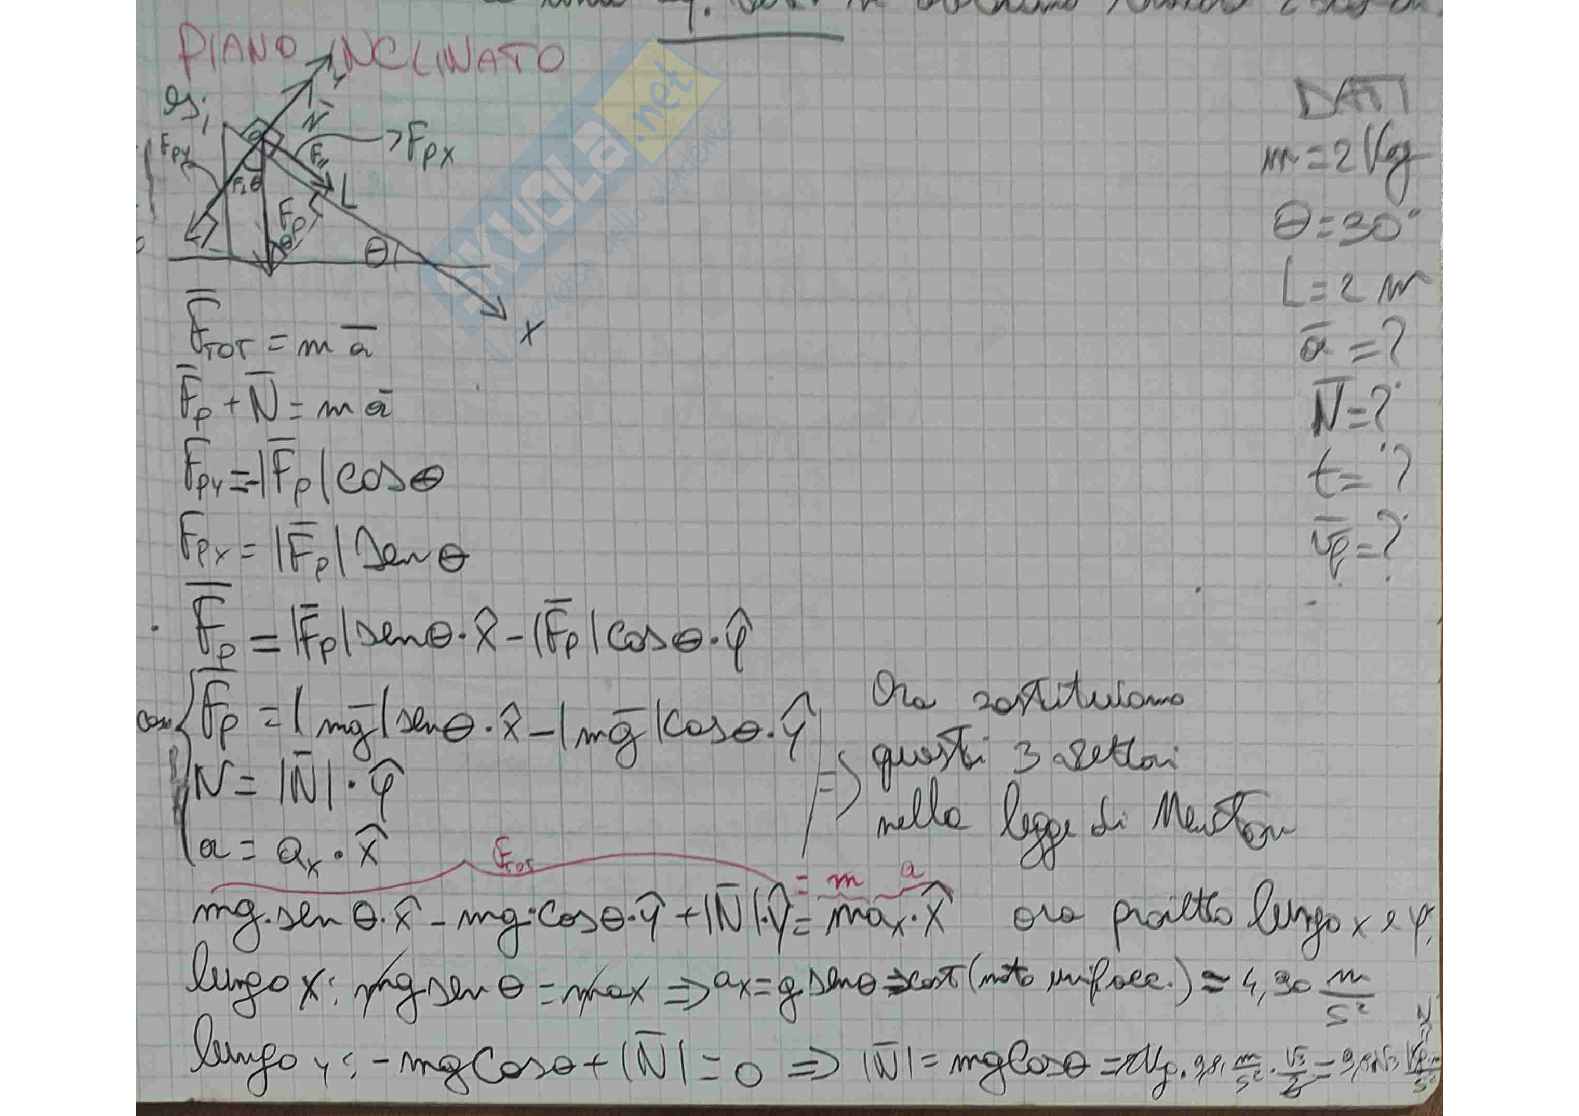 PIANO INCLINATO
es;
y
N̄
Fpx
Fpy
F//
L
θ
F̄p
θ
θ
x
DATI
m=2 Kg
θ=30°
L=2 m
ā=?
N̄=?
t=?
v̄f=?
F̄TOT = m ā
F̄p + N̄ = m ā
Fpy=-|F̄p| cosθ
Fpx= |F̄p| senθ
F̄p = |F̄p| senθ·x̂ - |F̄p| cosθ·ŷ
con { F̄p = |mḡ| senθ·x̂ - |mḡ| cosθ·ŷ
N = |N̄|·ŷ
a = ax·x̂
=> Ora sostituiamo
questi 3 vettori
nella legge di Newton
FTOT = m a
mg·senθ·x̂ - mg·cosθ·ŷ + |N̄|·ŷ = max·x̂ ora proietto lungo x e y:
lungo x: mg senθ = max => ax= g senθ = cost (moto unif. acc.) ≈ 4,90 m/s²
lungo y: -mg cosθ + |N̄| = 0 => |N̄| = mg cosθ = 2Kg · 9,81 m/s² · √3/2 =